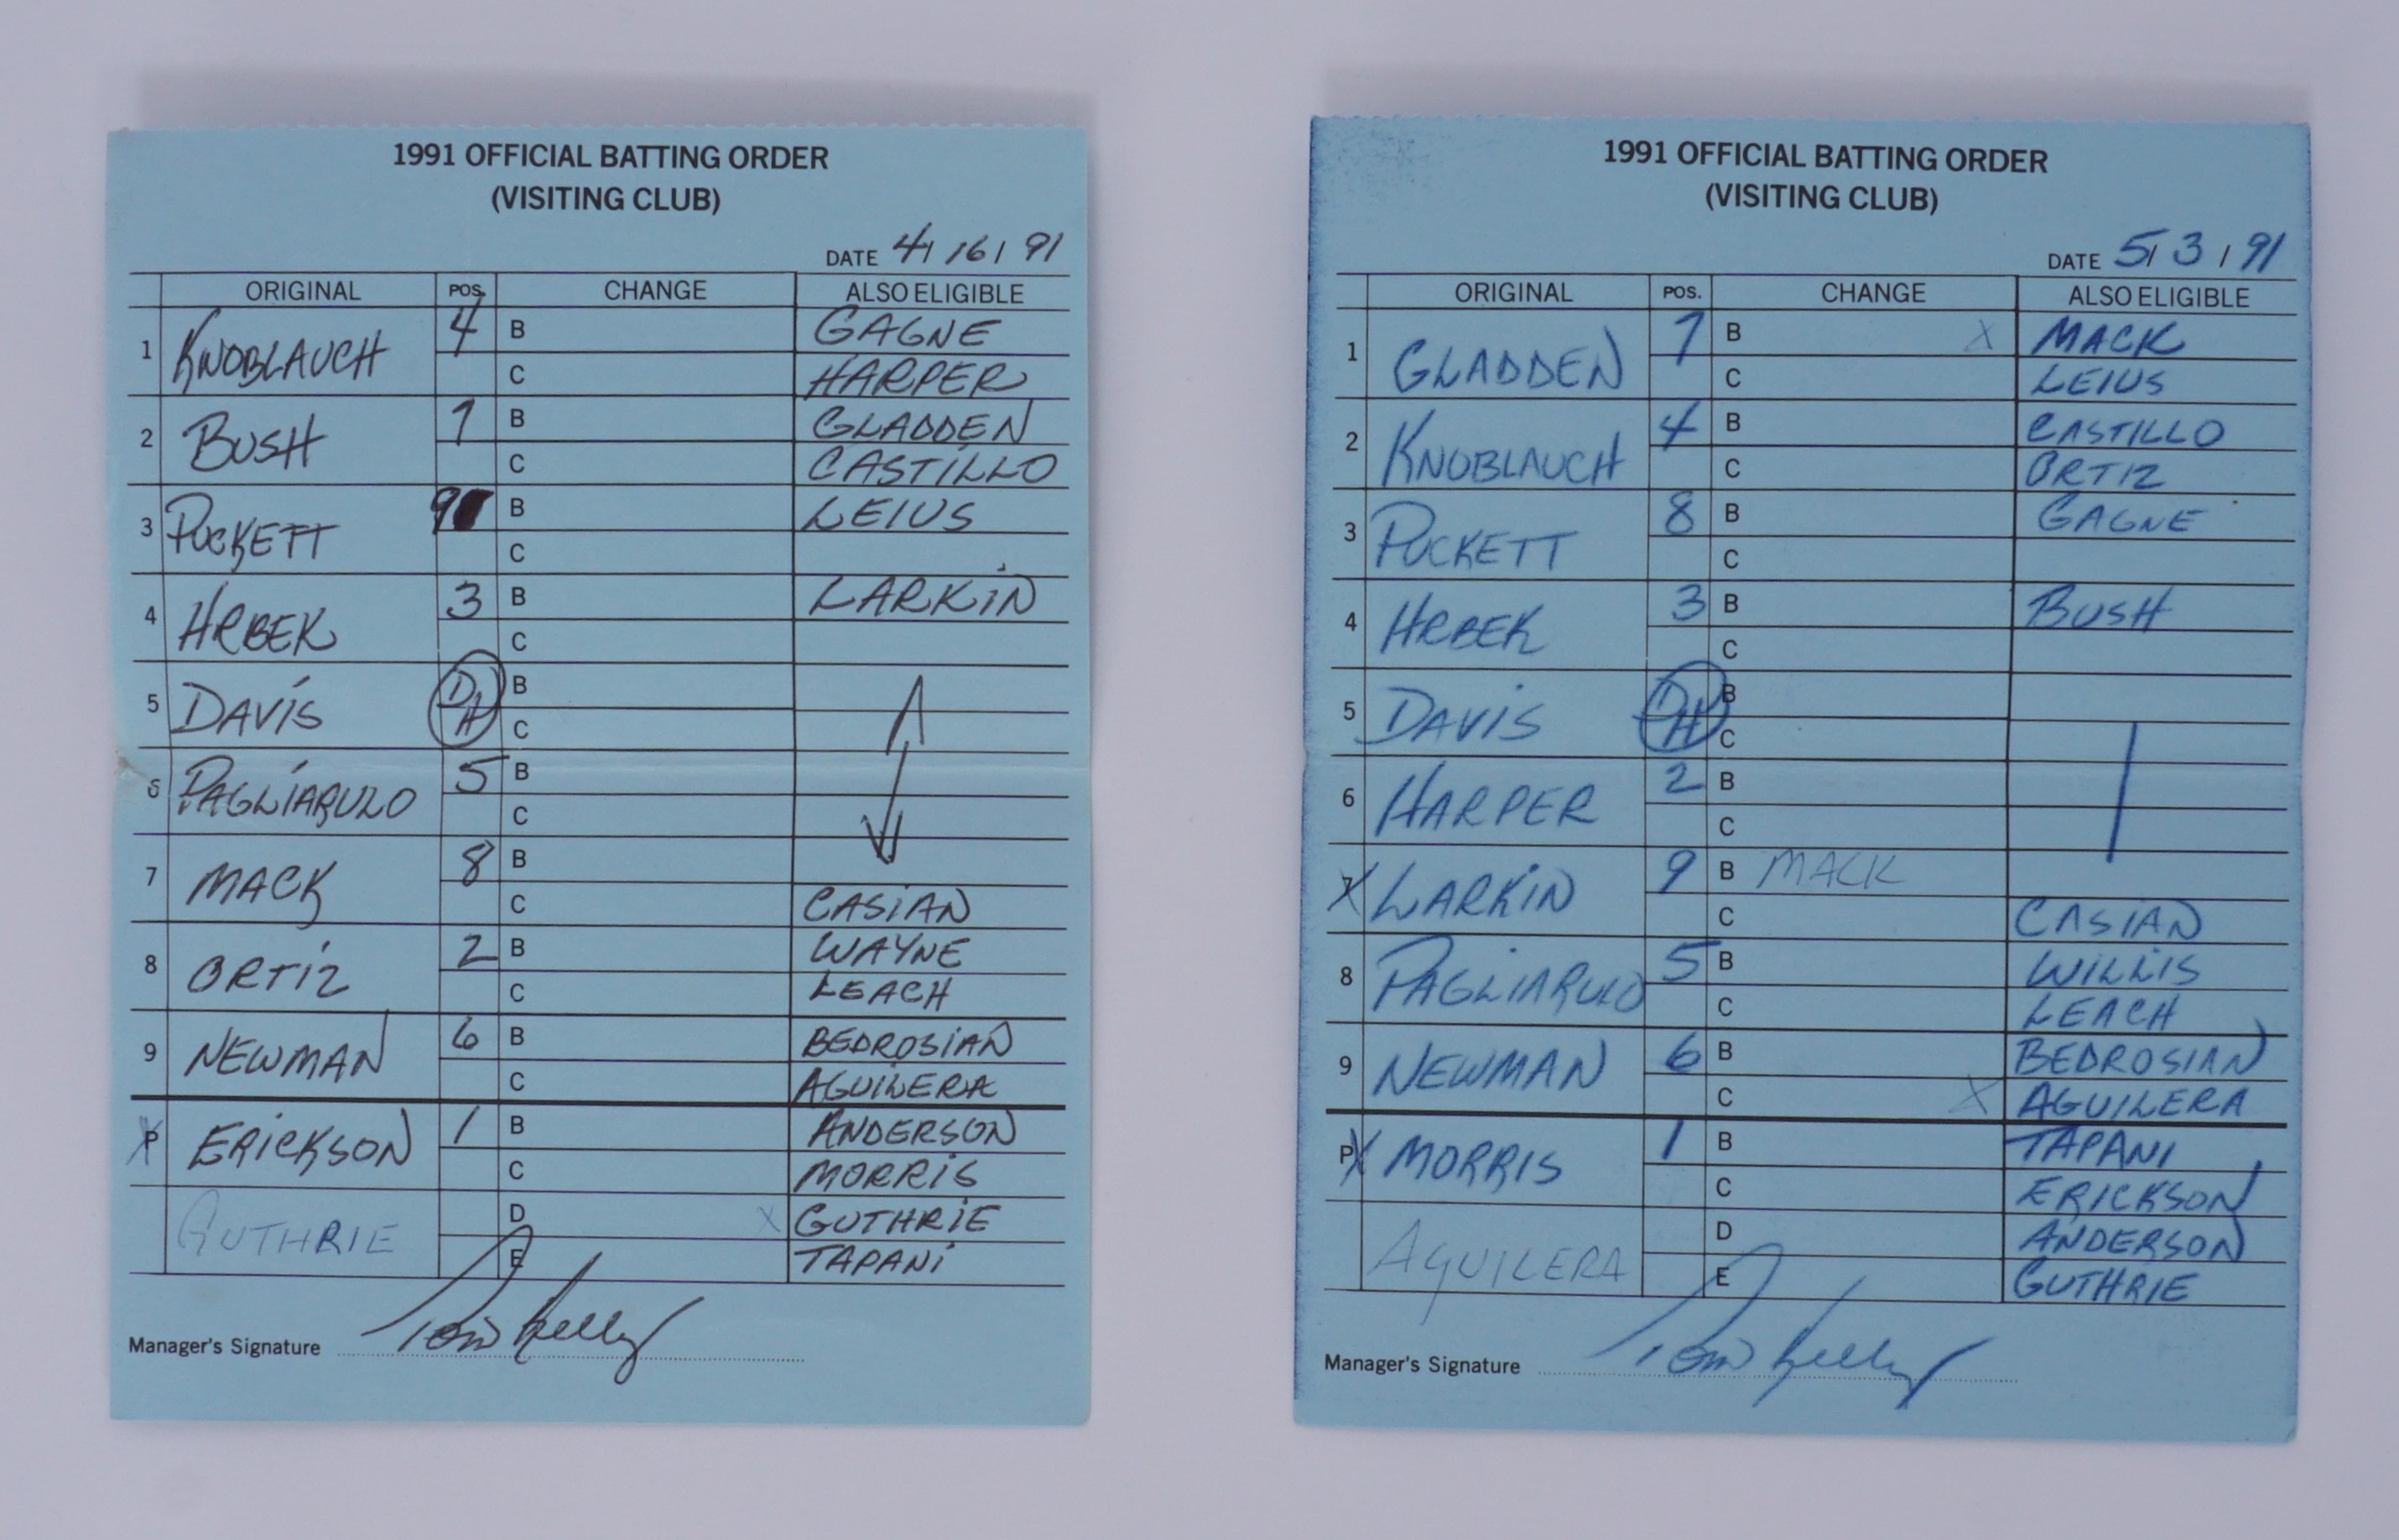 1991 OFFICIAL BATTING ORDER
(VISITING CLUB)
DATE 4/16/91
ORIGINAL POS. CHANGE ALSO ELIGIBLE
1 KNOBLAUCH 4 B GAGNE
C HARPER
2 BUSH 7 B GLADDEN
C CASTILLO
3 PUCKETT 9 B LEIUS
C
4 HRBEK 3 B LARKIN
C
5 DAVIS DH B
C
6 PAGLIARULO 5 B
C
7 MACK 8 B
C CASIAN
8 ORTIZ 2 B WAYNE
C LEACH
9 NEWMAN 6 B BEDROSIAN
C AGUILERA
X P ERICKSON 1 B ANDERSON
C MORRIS
GUTHRIE D X GUTHRIE
E TAPANI
Manager's Signature Tom Kelly
1991 OFFICIAL BATTING ORDER
(VISITING CLUB)
DATE 5/3/91
ORIGINAL POS. CHANGE ALSO ELIGIBLE
1 GLADDEN 7 B X MACK
C LEIUS
2 KNOBLAUCH 4 B CASTILLO
C ORTIZ
3 PUCKETT 8 B GAGNE
C
4 HRBEK 3 B BUSH
C
5 DAVIS DH B
C
6 HARPER 2 B
C
7 X LARKIN 9 B MACK
C CASIAN
8 PAGLIARULO 5 B WILLIS
C LEACH
9 NEWMAN 6 B BEDROSIAN
C X AGUILERA
P X MORRIS 1 B TAPANI
C ERICKSON
AGUILERA D ANDERSON
E GUTHRIE
Manager's Signature Tom Kelly